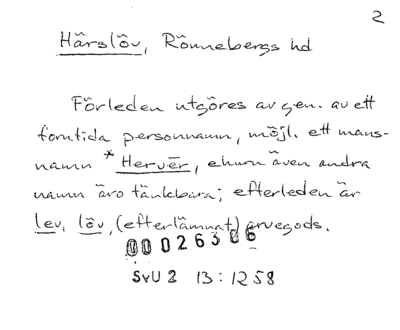 2
Härslöv, Rönnebergs hd
Förleden utgöres av gen. av ett
forntida personnamn, möjl. ett mans-
namn *Hervēr, ehuru även andra
namn äro tänkbara; efterleden är
lev, löv, (efterlämnat) arvegods.
00026306
SvU 2 13:1258